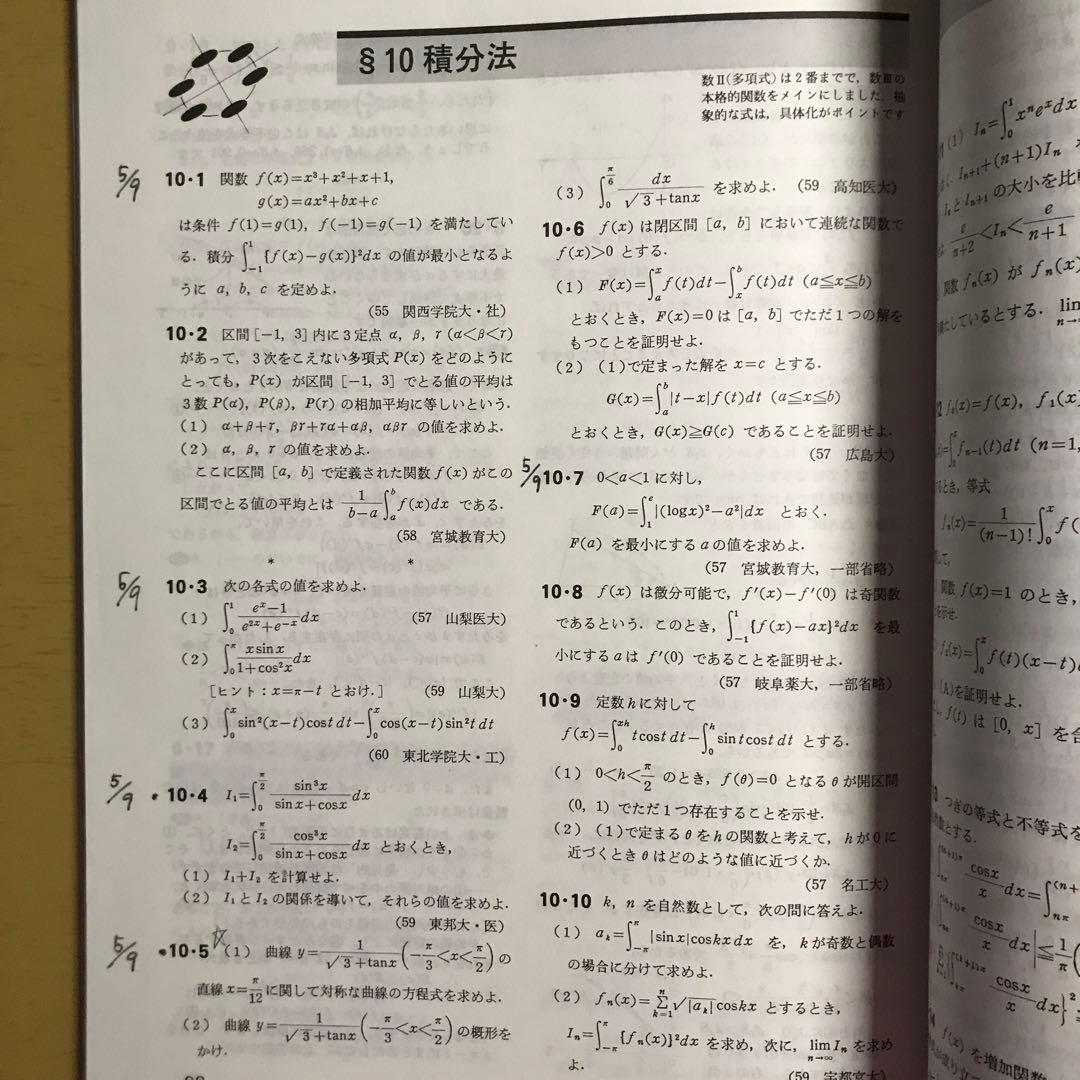 §10 積分法
数Ⅱ(多項式)は2番までで，数Ⅲの
本格的関数をメインにしました．抽
象的な式は，具体化がポイントです
5/9
10・1 関数 f(x)=x³+x²+x+1,
g(x)=ax²+bx+c
は条件 f(1)=g(1), f(-1)=g(-1) を満たしてい
る．積分 ∫_{-1}^{1}{f(x)-g(x)}²dx の値が最小となるよ
うに a, b, c を定めよ．
(55 関西学院大・社)
10・2 区間[-1, 3]内に3定点 α, β, γ(α<β<γ)
があって，3次をこえない多項式P(x)をどのように
とっても，P(x) が区間 [-1, 3]でとる値の平均は
3数P(α), P(β), P(γ) の相加平均に等しいという．
(1) α+β+γ, βγ+γα+αβ, αβγ の値を求めよ．
(2) α, β, γ の値を求めよ．
ここに区間 [a, b] で定義された関数 f(x) がこの
区間でとる値の平均とは 1/(b-a) ∫_a^b f(x)dx である．
(58 宮城教育大)
* *
5/9
10・3 次の各式の値を求めよ．
(1) ∫_0^1 (e^x-1)/(e^{2x}+e^{-x}) dx (57 山梨医大)
(2) ∫_0^π (x sin x)/(1+cos²x) dx
[ヒント：x=π-t とおけ．] (59 山梨大)
(3) ∫_0^x sin²(x-t)cost dt-∫_0^x cos(x-t)sin²t dt
(60 東北学院大・工)
5/9
・10・4 I₁=∫_0^{π/2} sin³x/(sinx+cosx) dx
I₂=∫_0^{π/2} cos³x/(sinx+cosx) dx とおくとき，
(1) I₁+I₂ を計算せよ．
(2) I₁とI₂の関係を導いて，それらの値を求めよ．
(59 東邦大・医)
5/9
・10・5 ☆(1) 曲線 y=1/(√3+tanx) (-π/3<x<π/2) の
直線 x=π/12 に関して対称な曲線の方程式を求めよ．
(2) 曲線 y=1/(√3+tanx) (-π/3<x<π/2) の概形を
かけ．
(3) ∫_0^{π/6} dx/(√3+tanx) を求めよ． (59 高知医大)
10・6 f(x) は閉区間 [a, b] において連続な関数で
f(x)>0 とする．
(1) F(x)=∫_a^x f(t)dt-∫_x^b f(t)dt (a≦x≦b)
とおくとき，F(x)=0 は [a, b] でただ1つの解を
もつことを証明せよ．
(2) (1)で定まった解を x=c とする．
G(x)=∫_a^b |t-x|f(t)dt (a≦x≦b)
とおくとき，G(x)≧G(c) であることを証明せよ．
(57 広島大)
5/9
10・7 0<a<1 に対し，
F(a)=∫_1^e |(logx)²-a²|dx とおく．
F(a) を最小にする a の値を求めよ．
(57 宮城教育大，一部省略)
10・8 f(x) は微分可能で，f′(x)-f′(0) は奇関数
であるという．このとき，∫_{-1}^{1}{f(x)-ax}²dx を最
小にする a は f′(0) であることを証明せよ．
(57 岐阜薬大，一部省略)
10・9 定数hに対して
f(x)=∫_0^{xh} tcost dt-∫_0^h sint cost dt とする．
(1) 0<h<π/2 のとき，f(θ)=0 となるθが開区間
(0, 1) でただ1つ存在することを示せ．
(2) (1)で定まるθをhの関数と考えて，hが0に
近づくときθはどのような値に近づくか．
(57 名工大)
10・10 k, n を自然数として，次の問に答えよ．
(1) a_k=∫_{-π}^{π} |sinx|coskx dx を，kが奇数と偶数
の場合に分けて求めよ．
(2) f_n(x)=Σ_{k=1}^{n} √|a_k| coskx とするとき，
I_n=∫_{-π}^{π}{f_n(x)}²dx を求め，次に，lim_{n→∞} I_n を求め
よ．
(59 宇都宮大)
(1) I_n=∫_0^1 xⁿe^x dx
I_{n+1}+(n+1)I_n
I_n と I_{n+1} の大小を比
e/(n+2)<I_n<e/(n+1)
関数 f_n(x) が f_n(x)
たしているとする．lim
f₀(x)=f(x), f₁(x)
∫_0^x f_{n-1}(t)dt (n=1,
とき，等式
f_n(x)=1/(n-1)! ∫_0^x f(
関数 f(x)=1 のとき，
を示せ．
∫_0^x f(t)(x-t)
(A)を証明せよ．
f(t) は [0, x] を
つぎの等式と不等式を
とする．
cosx/x dx=∫
cosx/x dx|≦1/π(
cosx/x dx}²
f(x) を増加関数